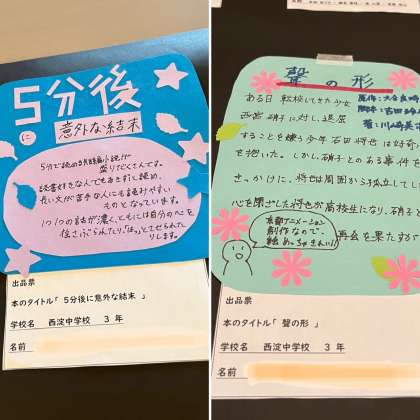 5分後
に
意外な結末
5分で読める短編小説が
盛りだくさんです。
読書好きな人でもあきずに読め、
長い文が苦手な人にも読みやすい
ものとなっています。
1つ1つの話が濃く、ときには自分の心を
揺さぶられたり、「ほっ」とさせられた
りします。
出品票
本のタイトル「 5分後に意外な結末 」
学校名 西淀中学校 3 年
名前
聲の形
ある日 転校してきた少女
西宮 硝子に対し、退屈
することを嫌う少年 石田 将也は好奇心
を抱いた。しかし、硝子とのある事件を
きっかけに、将也は周囲から孤立して
心を閉ざした将也が高校生になり、硝子と
再会を果たすが
京都アニメーション
制作なので、
絵めっちゃきれい!
出品票
本のタイトル「 聲の形 」
学校名 西淀中学校 3 年
名前